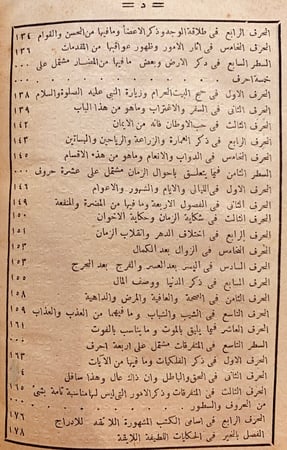 — د —
الحرف الرابع فى طلاقة الوجه وذكر الاعضاء ومافيها من الحسن والقوام ١٣٤
الحرف الخامس فى آثار الامور وظهور عواقبها من المقدمات ١٣٦
السطر السابع فى ذكر الارض وبعض مافيها من المضار مشتمل على ٠٠٠
خمسة احرف
الحرف الاول فى حج البيت الحرام وزيارة النبى عليه الصلوة والسلام ١٣٨
الحرف الثانى فى السفر والاغتراب وماهو من هذا الباب ١٣٩
الحرف الثالث فى حب الاوطان فانه من الايمان ١٤٢
الحرف الرابع فى ذكر العمارة والزراعة والرياحين والبساتين ١٤٣
الحرف الخامس فى الدواب والانعام وماهو من هذه الاقسام ١٤٠
السطر الثامن فيما يتعلق باحوال الزمان مشتمل على عشرة حروف ٠٠٠
الحرف الاول فى الليالى والايام والشهور والاعوام ١٤٦
الحرف الثانى فى الفصول الاربعة وما فيها من المضرة والمنفعة ١٤٩
الحرف الثالث فى شكاية الزمان وحكاية الاخوان ١٥٠
الحرف الرابع فى اختلاف الدهر وانقلاب الزمان ١٥٤
الحرف الخامس فى الزوال بعد الكمال ١٥٣
الحرف السادس فى اليسر بعد العسر والفرج بعد الحرج ١٥٣
الحرف السابع فى ذكر الدنيا ووصف المال ١٥٥
الحرف الثامن فى الصحة والعافية والمرض والداهية ١٥٨
الحرف التاسع فى الشيب والشباب وما فيهما من العذب والعذاب ١٥٩
الحرف العاشر فيما يليق بالموت وما يناسب بالفوت ١٦١
السطر التاسع فى المتفرقات مشتمل على اربعة احرف
الحرف الاول فى ذكر الفلكيات وما فيها من الآيات ١٦٣
الحرف الثانى فى الحق والباطل وان ذلك عال وهذا سافل ٤
الحرف الثالث فى المتفرقات وذكر الامور التى ليس لها مناسبة تامة بشئ ١٦٥
من الحروف والسطور ٠٠٠
الحرف الرابع فى اسامى الكتب المشهورة للادراج ١٧٦
الفصل بالخير فى الحكايات اللطيفة اللايقة ١٧٨